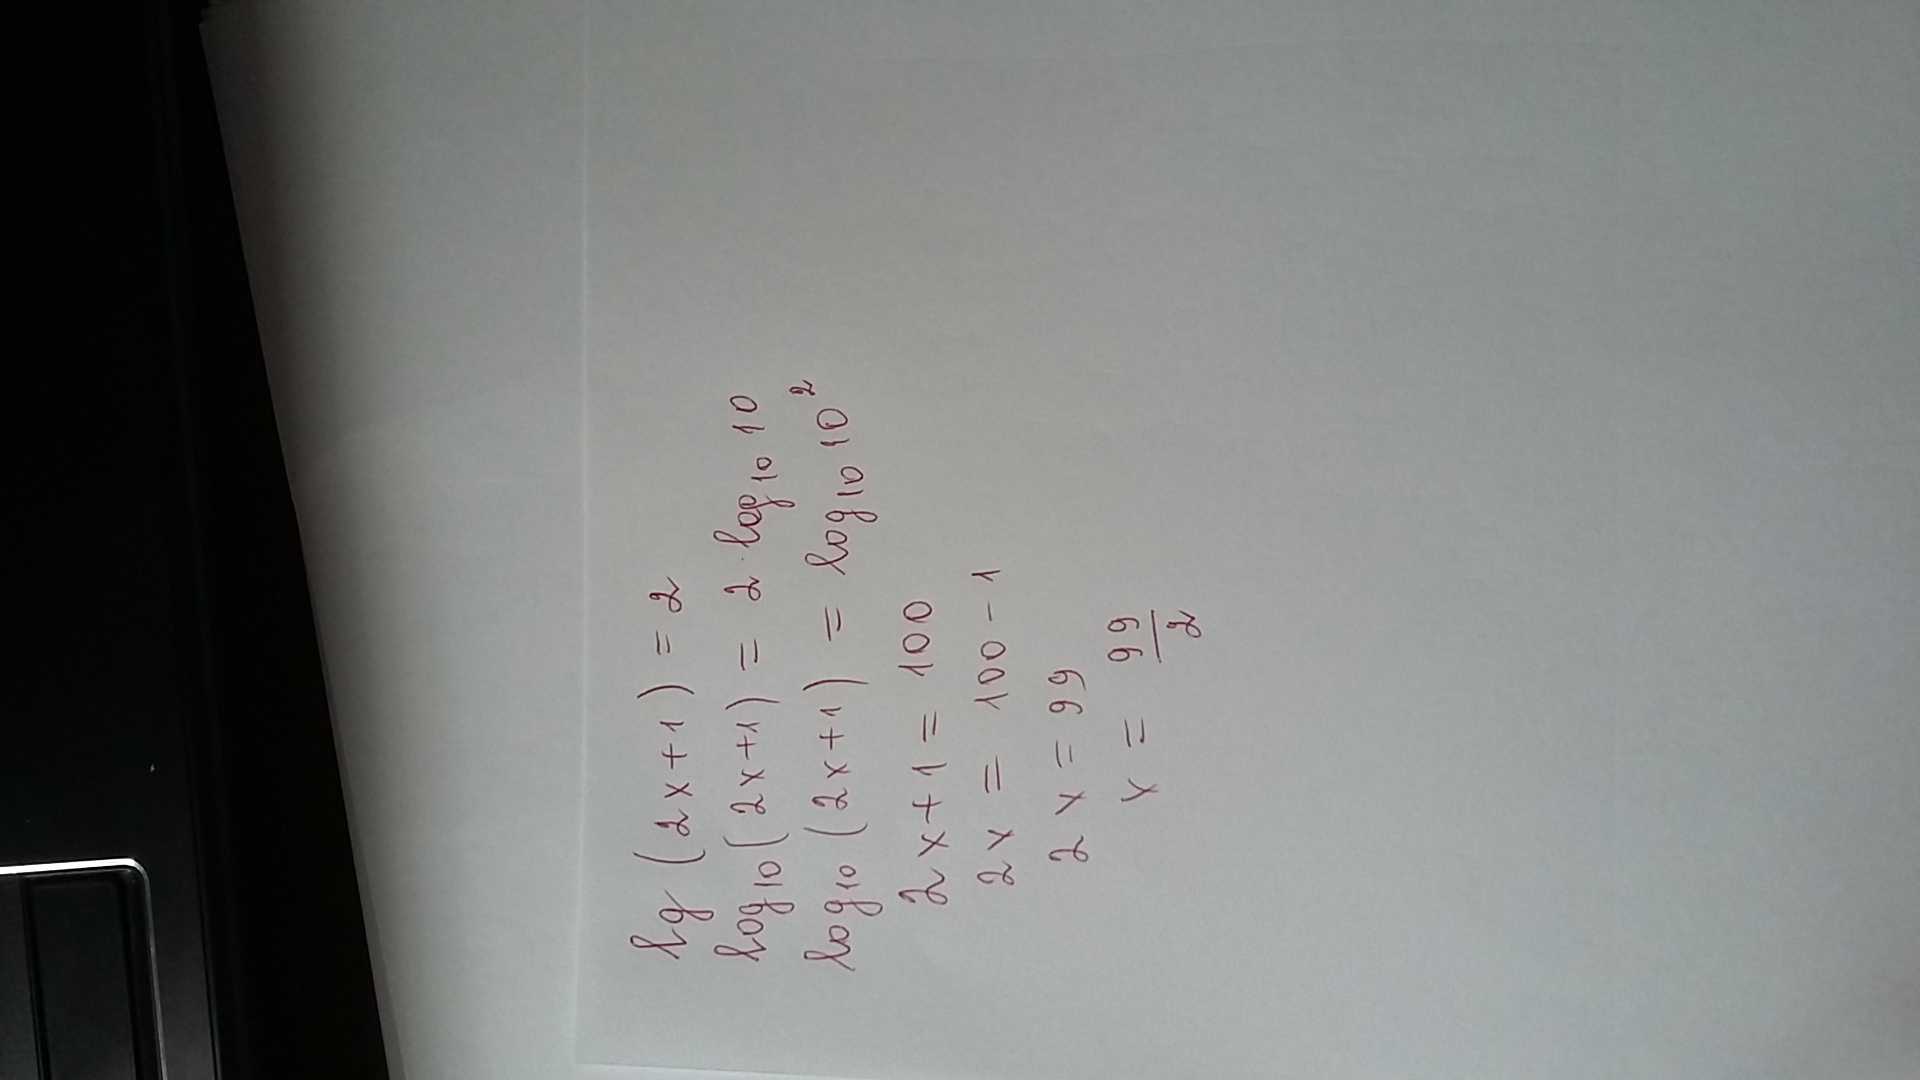 lg (2x+1) = 2
log₁₀(2x+1) = 2·log₁₀10
log₁₀(2x+1) = log₁₀10²
2x+1 = 100
2x = 100-1
2x = 99
x = 99/2